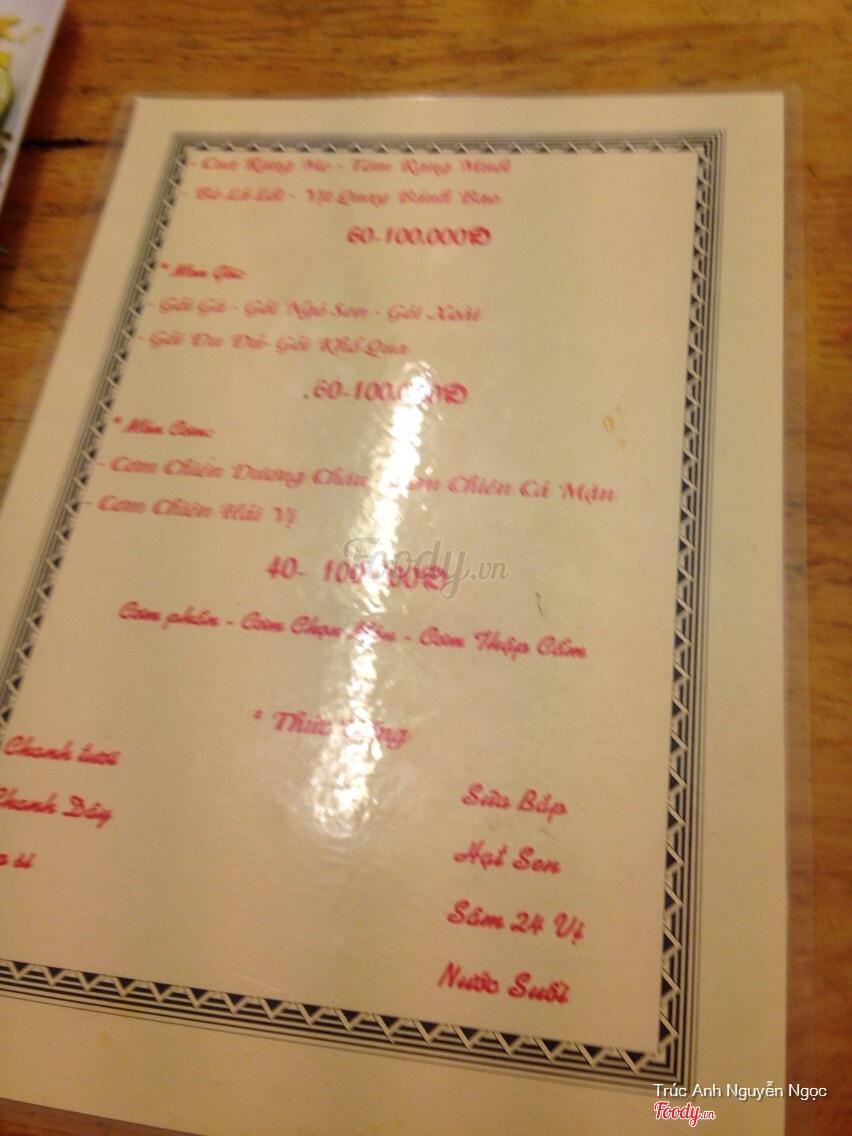 - Cua Rang Me - Tôm Rang Muối
- Bò Lá Lốt - Vịt Quay Bánh Bao
60-100.000Đ
* Món Gỏi:
- Gỏi Gà - Gỏi Ngó Sen - Gỏi Xoài
- Gỏi Đu Đủ- Gỏi Khổ Qua
60-100.000Đ
* Món Cơm:
- Cơm Chiên Dương Châu - Cơm Chiên Cá Mặn
- Cơm Chiên Hải Vị
40- 100.000Đ
Cơm phần - Cơm Chọn Món - Cơm Thập Cẩm
* Thức Uống
Chanh tươi
Chanh Dây
Sữa Bắp
Hạt Sen
Sâm 24 Vị
Nước Suối
Foody.vn
Trúc Anh Nguyễn Ngọc
Foody.vn